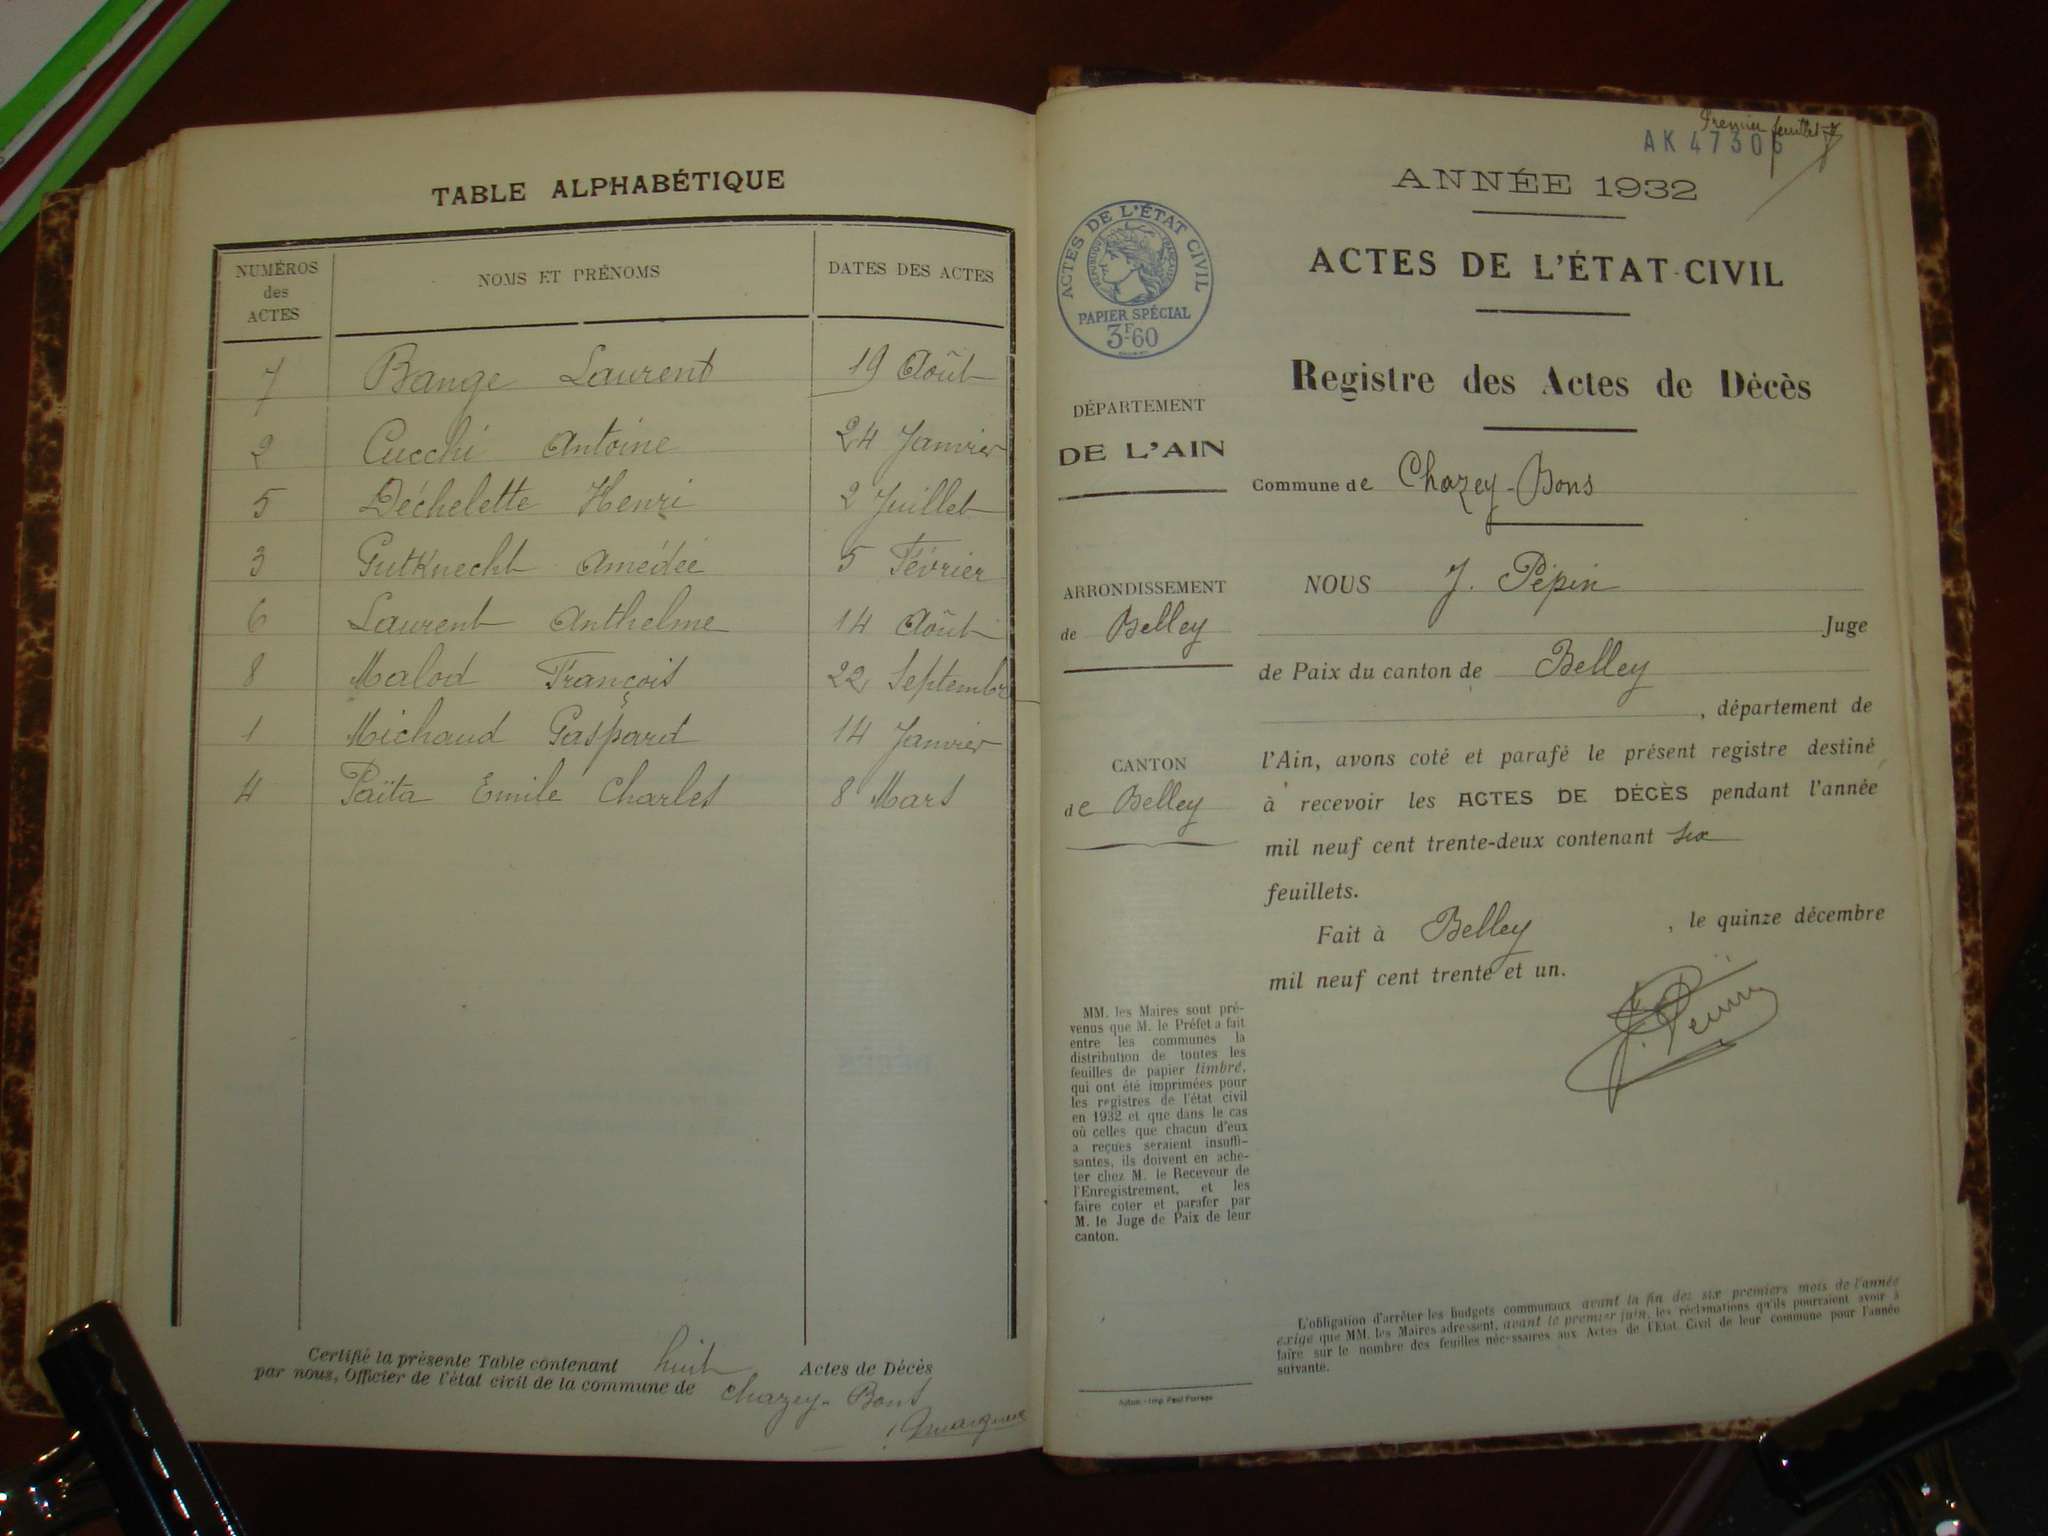 TABLE ALPHABÉTIQUE
NUMÉROS des ACTES NOMS ET PRÉNOMS DATES DES ACTES
7 Bange Laurent 19 Août
2 Cucchi Antoine 24 Janvier
5 Déchelette Henri 2 Juillet
3 Gutknecht Amédée 5 Février
6 Laurent Anthelme 14 Août
8 Malod François 22 Septembre
1 Michaud Gaspard 14 Janvier
4 Païta Emile Charles 8 Mars
Certifié la présente Table contenant huit Actes de Décès
par nous, Officier de l'état civil de la commune de Chazey-Bons
Premier feuillet
AK 47306
ANNÉE 1932
ACTES DE L'ÉTAT CIVIL
RÉPUBLIQUE FRANÇAISE
PAPIER SPÉCIAL
3F.60
ACTES DE L'ÉTAT-CIVIL
Registre des Actes de Décès
DÉPARTEMENT
DE L'AIN
Commune de Chazey-Bons
ARRONDISSEMENT
de Belley
CANTON
de Belley
NOUS J. Pépin
Juge
de Paix du canton de Belley
, département de
l'Ain, avons coté et parafé le présent registre destiné
à recevoir les ACTES DE DÉCÈS pendant l'année
mil neuf cent trente-deux contenant six
feuillets.
Fait à Belley, le quinze décembre
mil neuf cent trente et un.
J. Pépin
MM. les Maires sont pré-
venus que M. le Préfet a fait
entre les communes la
distribution de toutes les
feuilles de papier timbré,
qui ont été imprimées pour
les registres de l'état civil
en 1932 et que dans le cas
où celles que chacun d'eux
a reçues seraient insuffi-
santes, ils doivent en ache-
ter chez M. le Receveur de
l'Enregistrement, et les
faire coter et parafer par
M. le Juge de Paix de leur
canton.
L'obligation d'arrêter les budgets communaux avant la fin des six premiers mois de l'année
exige que MM. les Maires adressent, avant le premier juin, les réclamations qu'ils pourraient avoir à
faire sur le nombre des feuilles nécessaires aux Actes de l'Etat Civil de leur commune pour l'année
suivante.